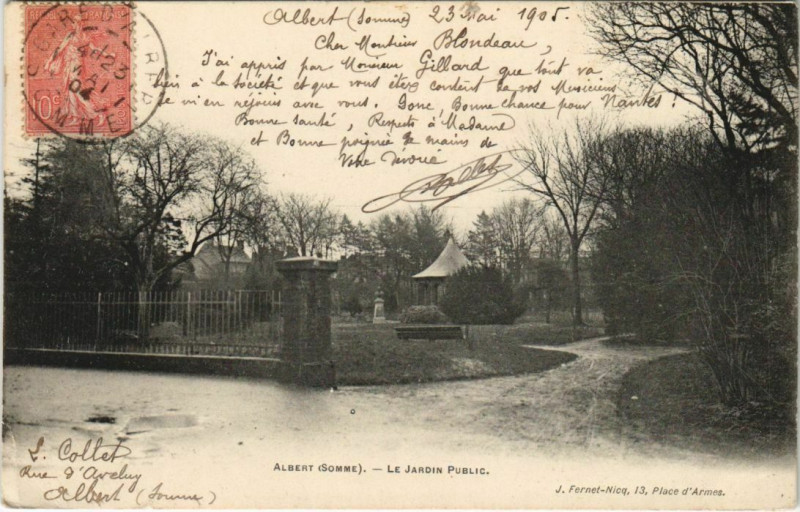 Albert (Somme) 23 Mai 1905.
Cher Monsieur Blondeau,
J'ai appris par Monsieur Gillard que tout va
bien à la société et que vous êtes content de vos Musiciens
je m'en réjouis avec vous. Donc, Bonne chance pour Nantes!
Bonne santé, Respects à Madame
et Bonne poignée de mains de
Votre Dévoué
Collet
10c
L. Collet
Rue d'Aveluy
Albert (Somme)
ALBERT (SOMME). — LE JARDIN PUBLIC.
J. Fernet-Nicq, 13, Place d'Armes.